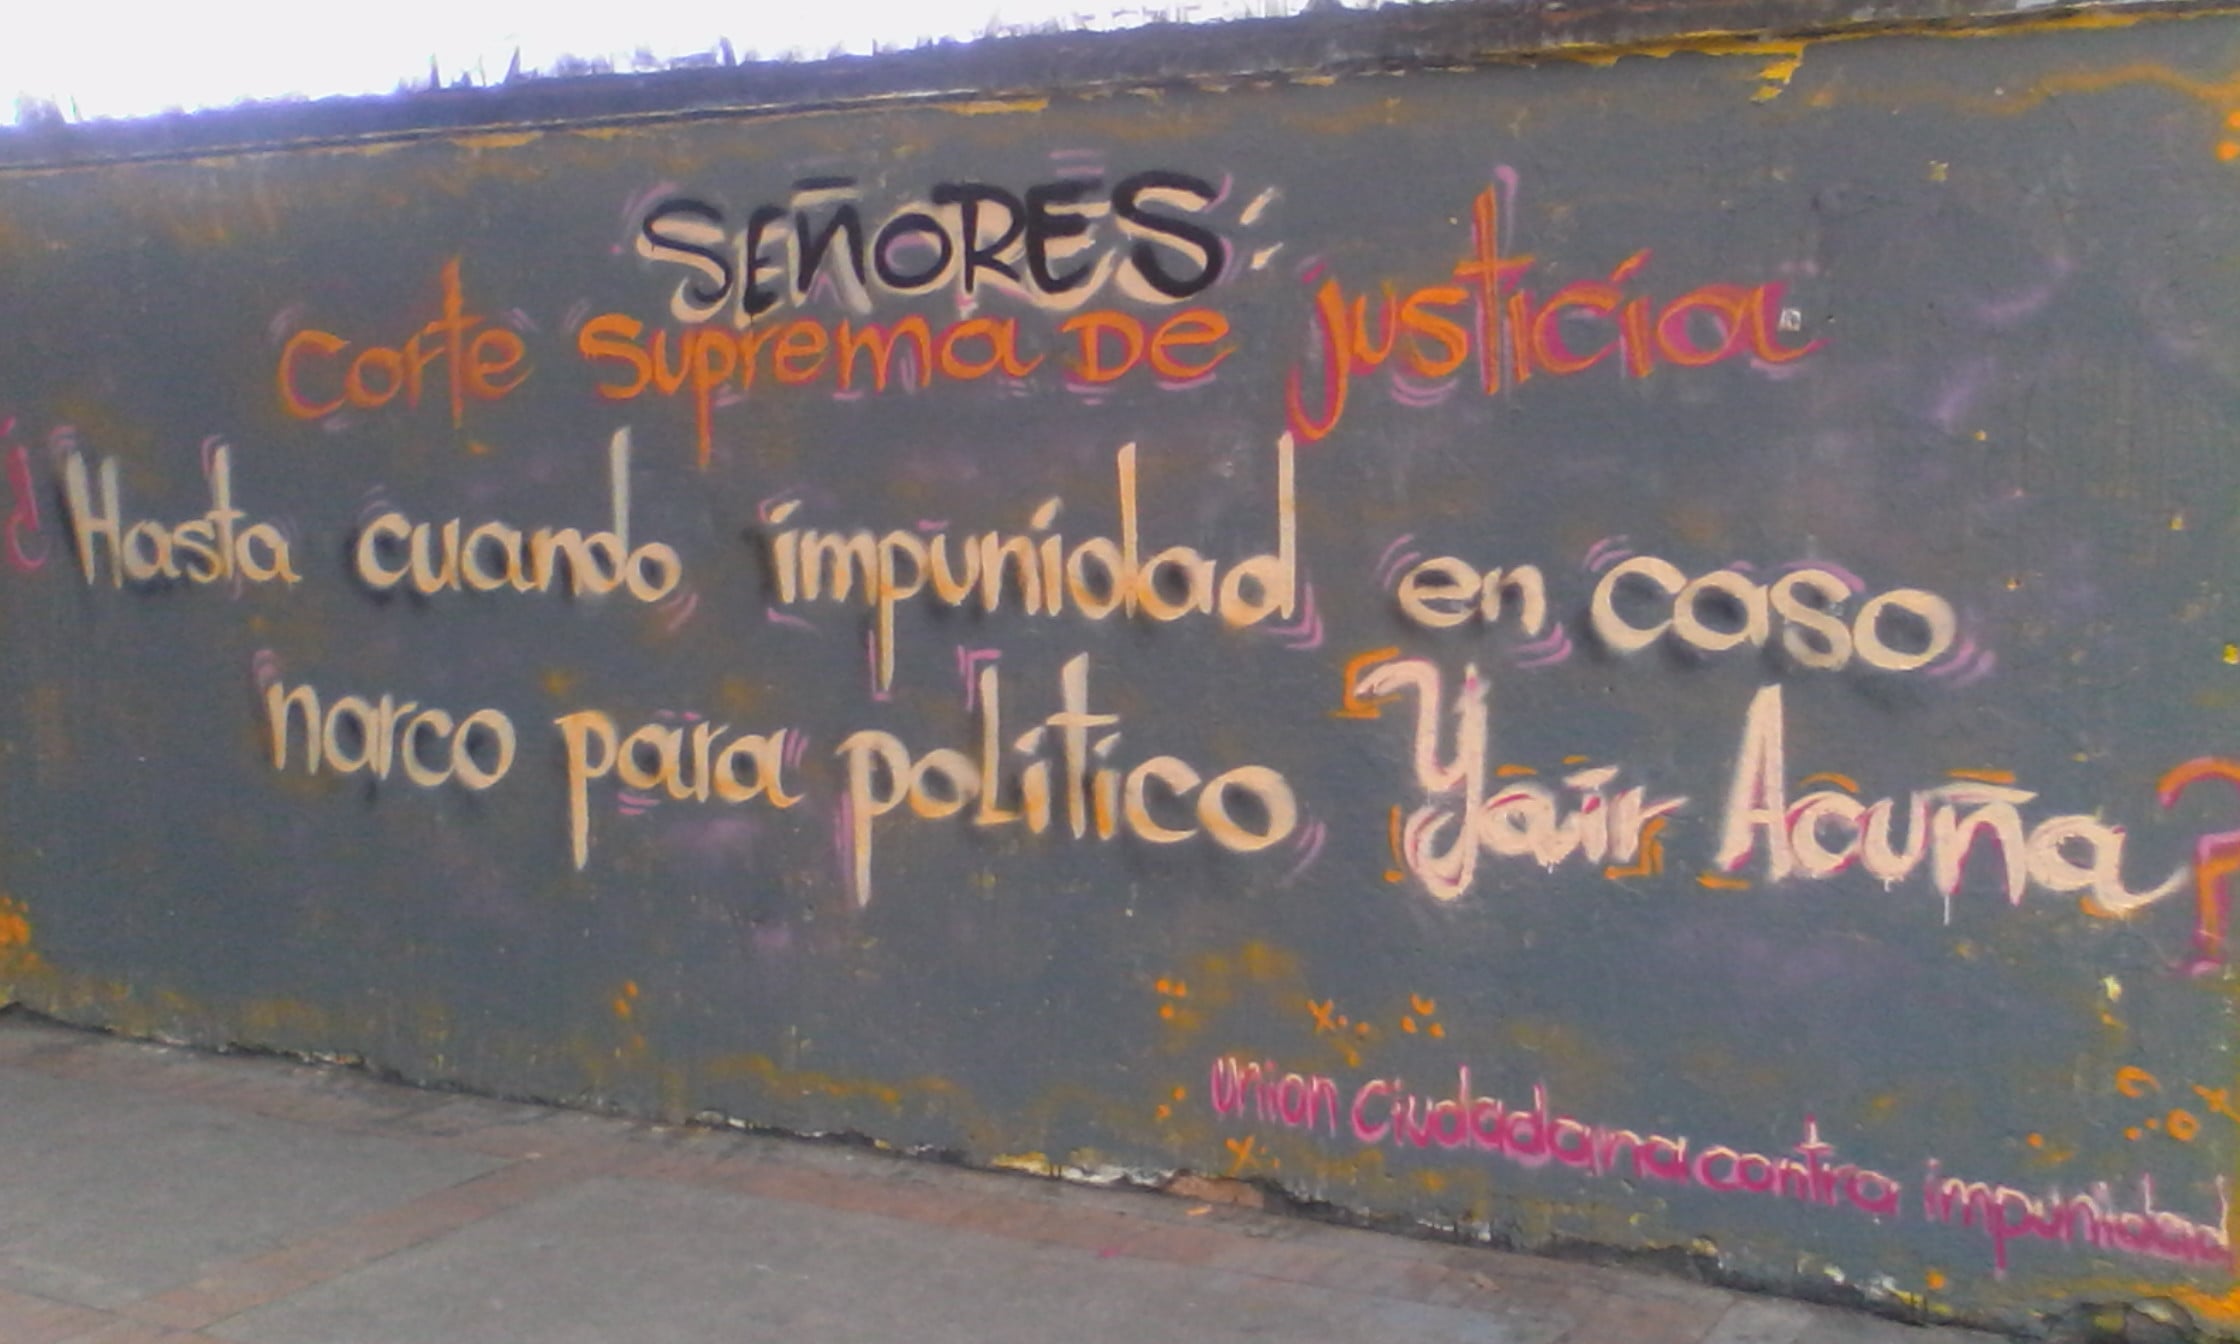 SEÑORES:
corte suprema DE justicia
¿Hasta cuando impunidad en caso
narco para politico Yair Acuña?
union ciudadana contra impunidad